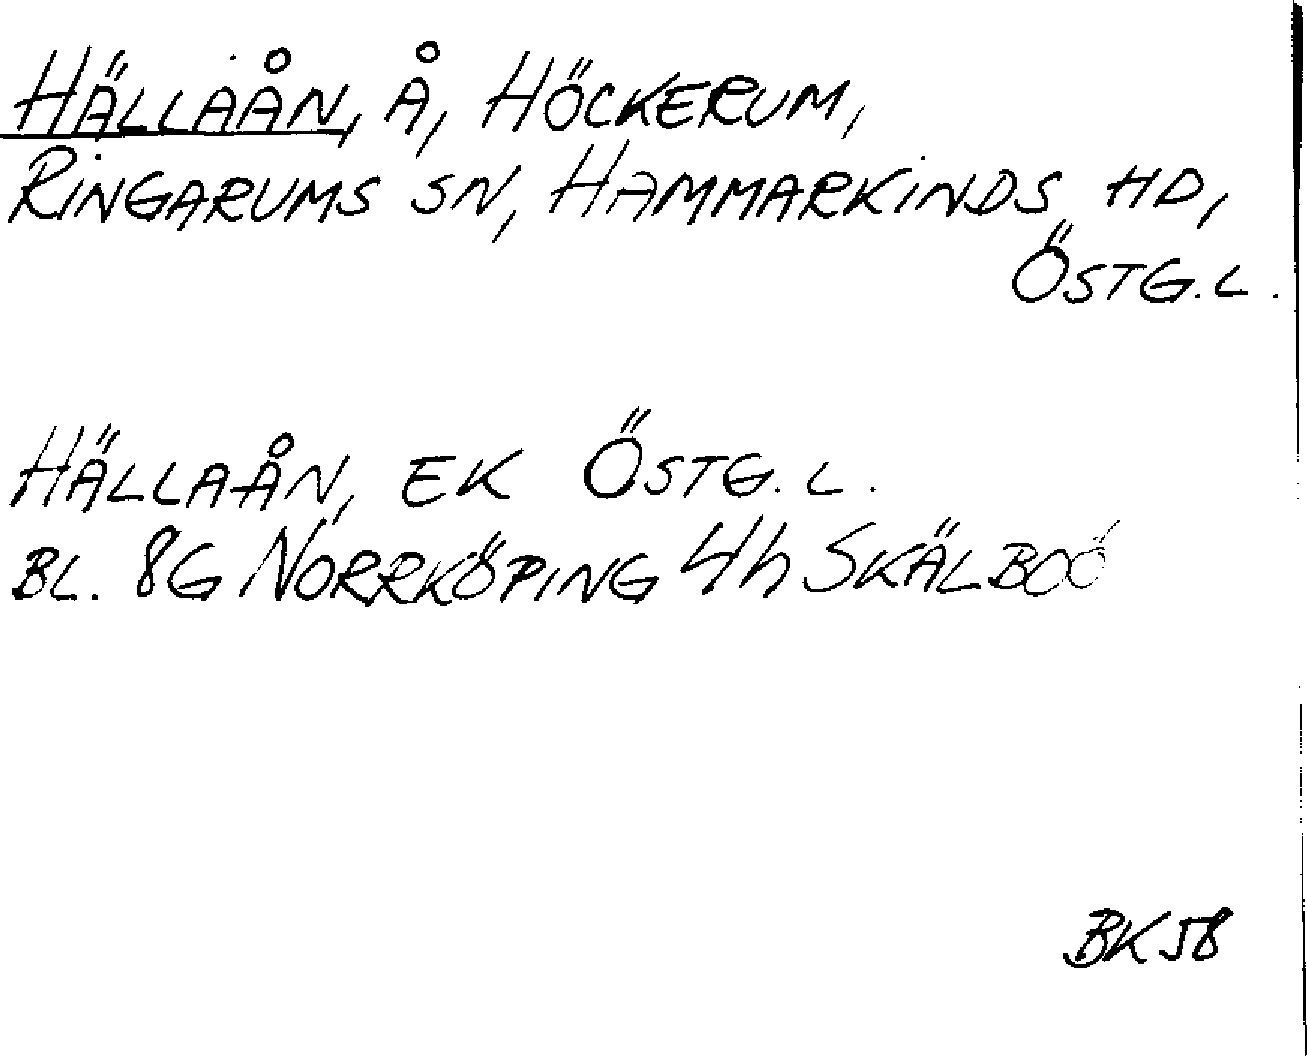 HÄLLAÅN, Å, HÖCKERUM,
RINGARUMS SN, HAMMARKINDS HD,
ÖSTG.L.
HÄLLAÅN, EK ÖSTG.L.
BL. 8G NORRKÖPING 4h SKÄLBOÖ
BK58